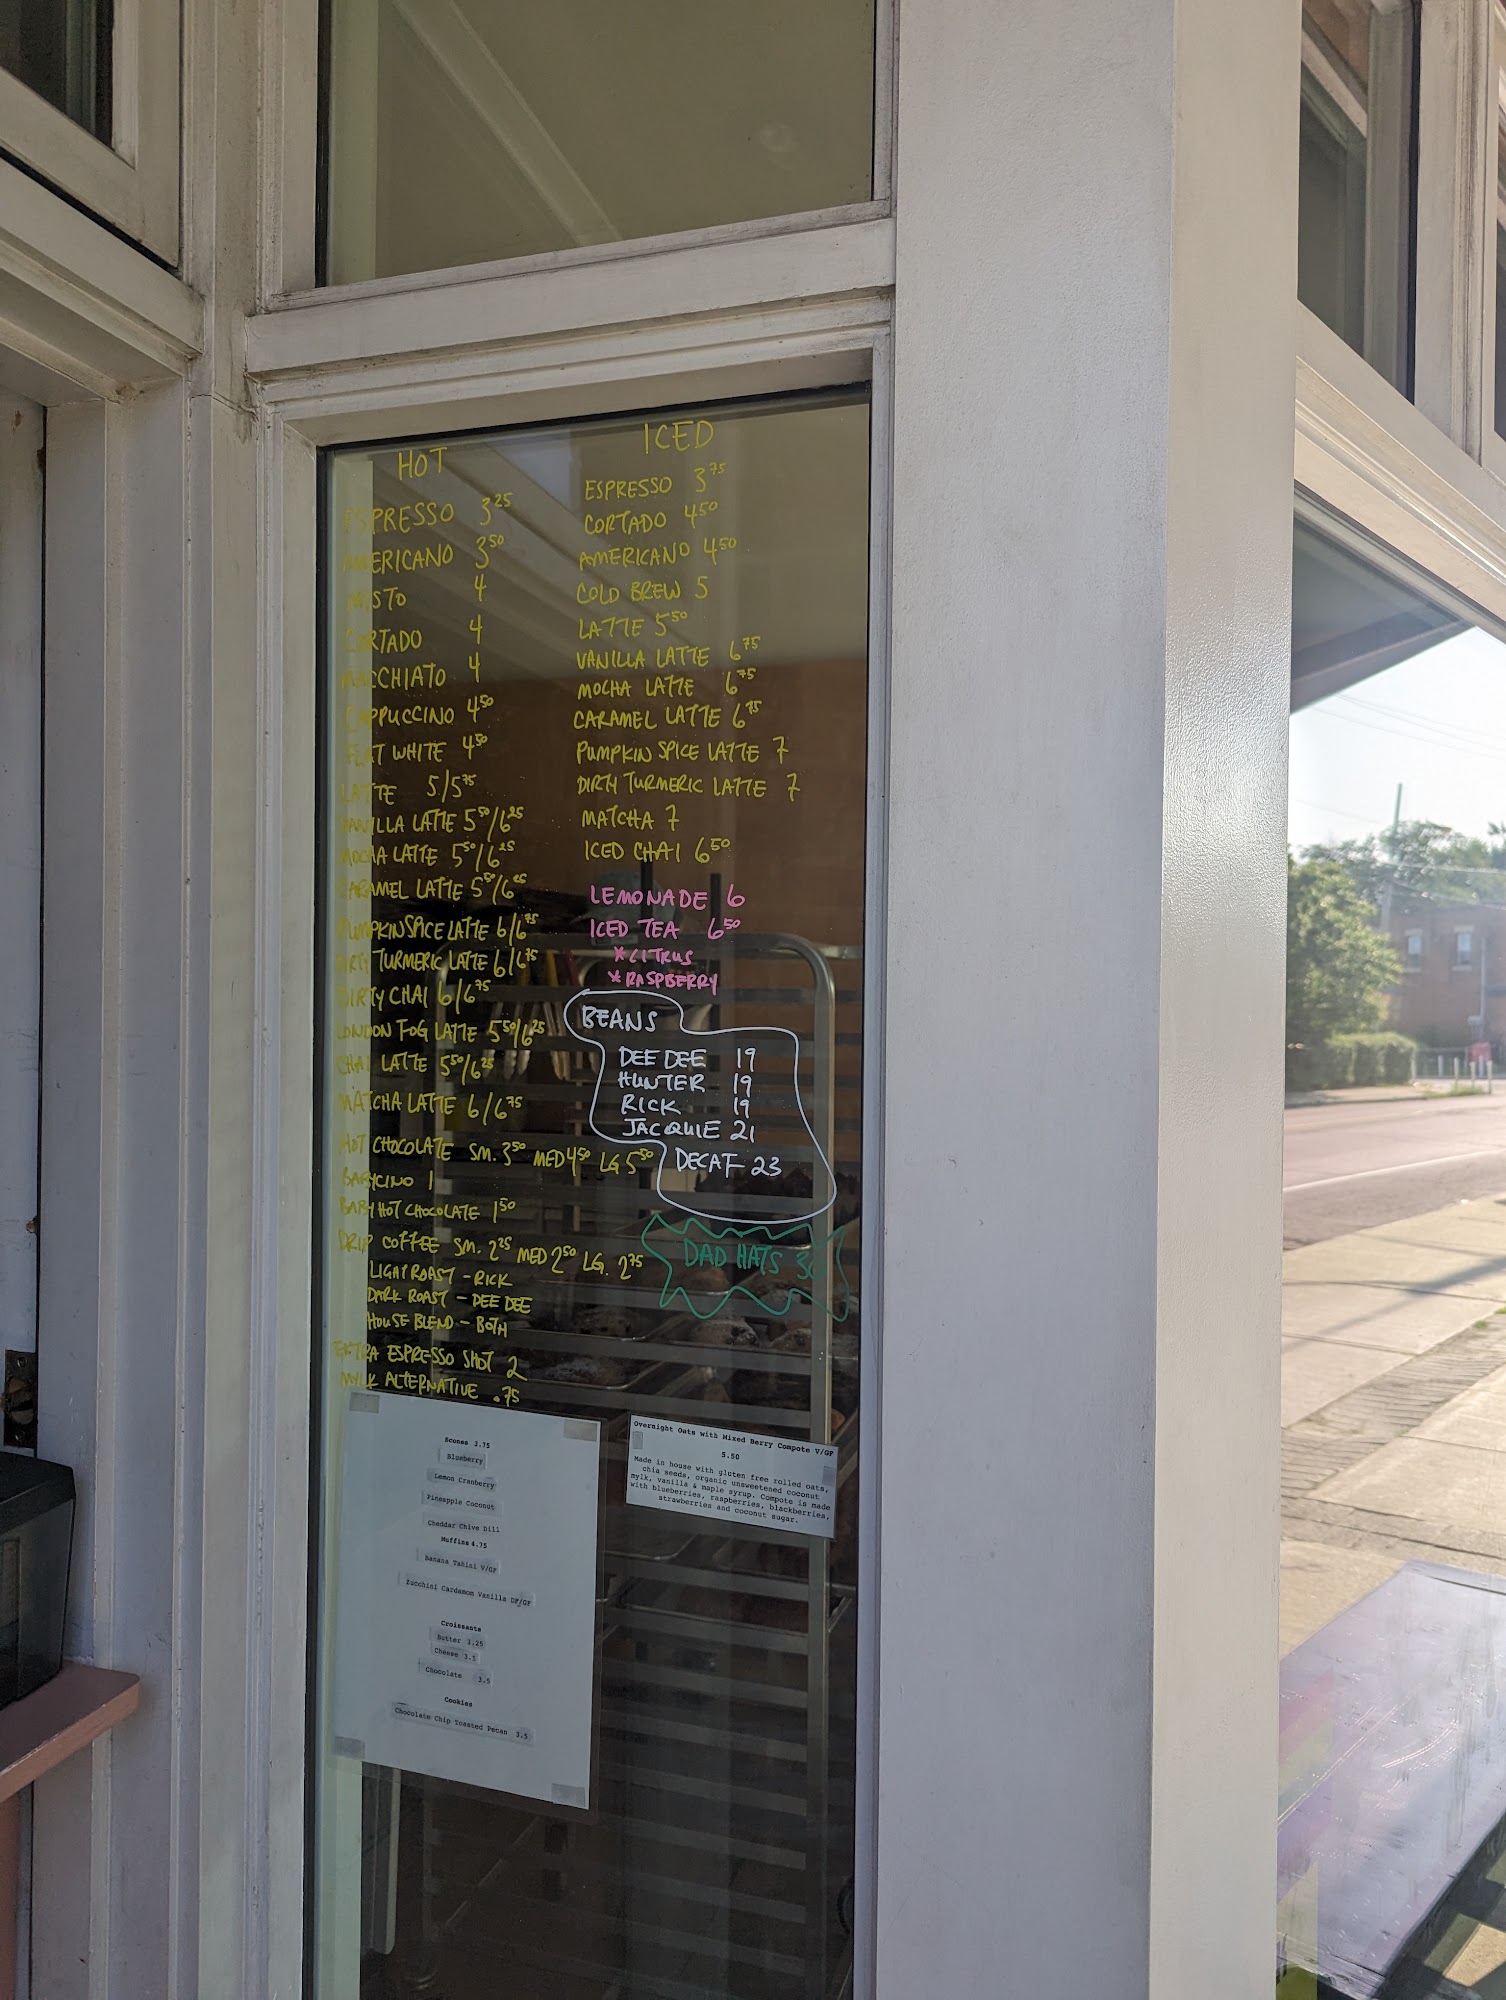 HOT
ESPRESSO 3.25
AMERICANO 3.50
MISTO 4
CORTADO 4
MACCHIATO 4
CAPPUCCINO 4.50
FLAT WHITE 4.50
LATTE 5/5.75
VANILLA LATTE 5.50/6.25
MOCHA LATTE 5.50/6.25
CARAMEL LATTE 5.50/6.25
PUMPKIN SPICE LATTE 6/6.75
DIRTY TURMERIC LATTE 6/6.75
DIRTY CHAI 6/6.75
LONDON FOG LATTE 5.50/6.25
CHAI LATTE 5.50/6.25
MATCHA LATTE 6/6.75
HOT CHOCOLATE SM. 3.50 MED 4.50 LG 5.50
BABYCINO 1
BABY HOT CHOCOLATE 1.50
DRIP COFFEE SM. 2.25 MED 2.50 LG. 2.75
LIGHT ROAST - RICK
DARK ROAST - DEE DEE
HOUSE BLEND - BOTH
EXTRA ESPRESSO SHOT 2
MYLK ALTERNATIVE .75
ICED
ESPRESSO 3.75
CORTADO 4.50
AMERICANO 4.50
COLD BREW 5
LATTE 5.50
VANILLA LATTE 6.75
MOCHA LATTE 6.75
CARAMEL LATTE 6.75
PUMPKIN SPICE LATTE 7
DIRTY TURMERIC LATTE 7
MATCHA 7
ICED CHAI 6.50
LEMONADE 6
ICED TEA 6.50
*CITRUS
*RASPBERRY
BEANS
DEE DEE 19
HUNTER 19
RICK 19
JACQUIE 21
DECAF 23
DAD HATS 30
Scones 3.75
Blueberry
Lemon Cranberry
Pineapple Coconut
Cheddar Chive Dill
Muffins 4.75
Banana Tahini V/GF
Zucchini Cardamom Vanilla DF/GF
Croissants
Butter 3.25
Cheese 3.5
Chocolate 3.5
Cookies
Chocolate Chip Toasted Pecan 3.5
Overnight Oats with Mixed Berry Compote V/GF
5.50
Made in house with gluten free rolled oats,
chia seeds, organic unsweetened coconut
mylk, vanilla & maple syrup. Compote is made
with blueberries, raspberries, blackberries,
strawberries and coconut sugar.